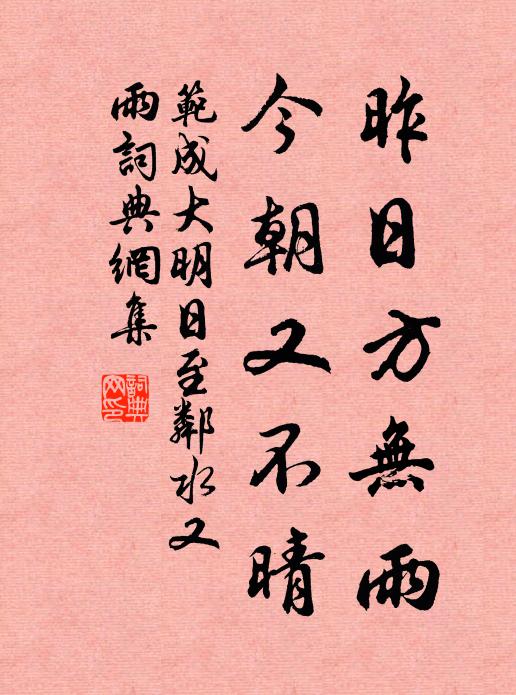 昨日方無雨
今朝又不晴
範成大明日至鄰水又
雨詞典網集
詞典
网印